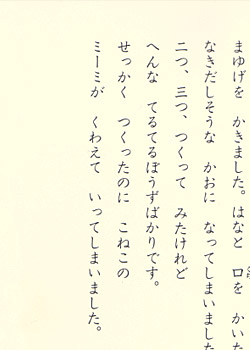 まゆげを　かきました。はなと　口を　かいた
なきだしそうな　かおに　なってしまいました
二つ、三つ、つくって　みたけれど
へんな　てるてるぼうずばかりです。
せっかく　つくったのに　こねこの
ミーミが　くわえて　いってしまいました。